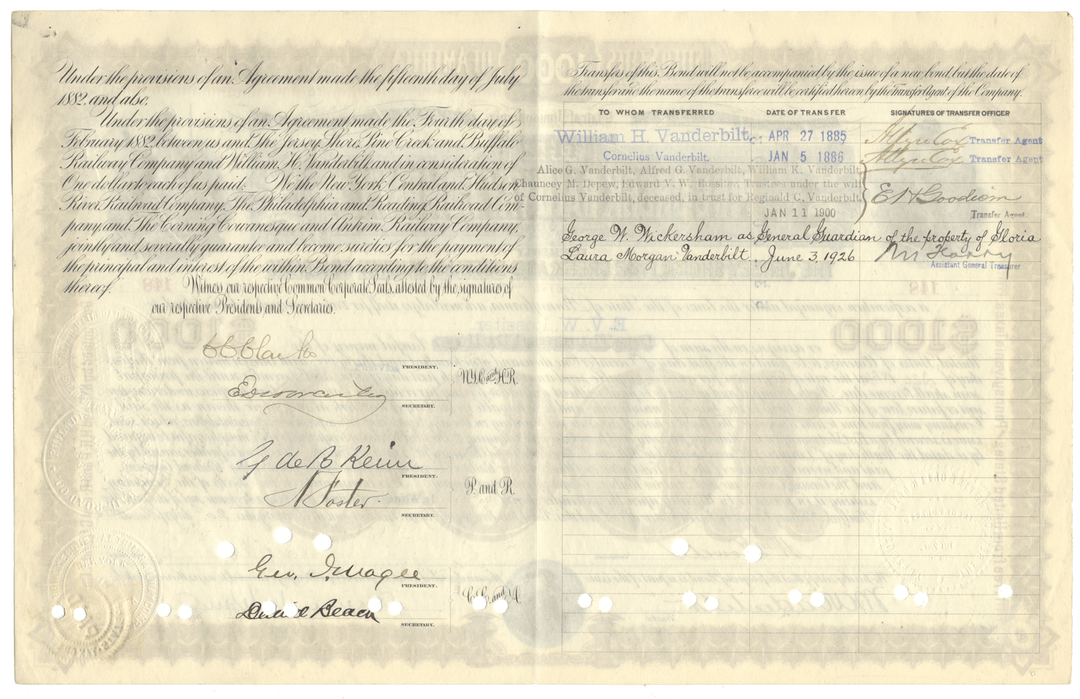 Under the provisions of an Agreement made the fifteenth day of July
1882. and also.
Under the provisions of an Agreement made the Fourth day of
February 1882 between us and The Jersey Shore, Pine Creek and Buffalo
Railway Company and William H. Vanderbilt and in consideration of
One dollar to each of us paid: We the New York Central and Hudson
River Railroad Company, The Philadelphia and Reading Railroad Com-
pany and The Corning Cowanesque and Antrim Railway Company,
jointly and severally guarantee and become sureties for the payment of
the principal and interest of the within Bond according to the conditions
thereof.
Witness our respective Common Corporate Seals, attested by the signatures of
our respective Presidents and Secretaries.
PRESIDENT.
N.Y.C. and H.R.
SECRETARY.
G de B Keim
PRESIDENT.
P. and R.
SECRETARY.
Geo. J. Magee
PRESIDENT.
Daniel Beach
SECRETARY.
Transfers of this Bond will not be accompanied by the issue of a new bond, but the date of
the transfer and the name of the transferee will be certified hereon by the Transfer Agent of the Company.
TO WHOM TRANSFERRED DATE OF TRANSFER SIGNATURES OF TRANSFER OFFICER
William H. Vanderbilt. APR 27 1885 Allyn Cox Transfer Agent
Cornelius Vanderbilt. JAN 5 1886 Allyn Cox Transfer Agent
Alice G. Vanderbilt, Alfred G. Vanderbilt, William K. Vanderbilt
Chauncey M. Depew, Edward V. W. Rossiter, Trustees under the will
of Cornelius Vanderbilt, deceased, in trust for Reginald C. Vanderbilt
JAN 11 1900 Transfer Agent.
George W. Wickersham as General Guardian of the property of Gloria
Laura Morgan Vanderbilt. June 3, 1926
Assistant General Treasurer